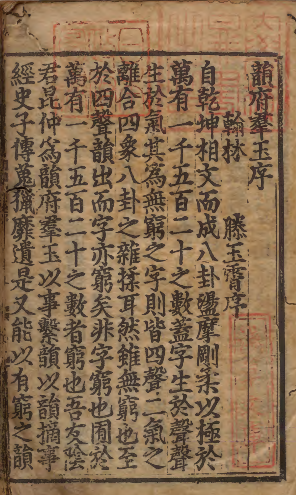 韻府羣玉序
翰林　滕玉霄序
自乾坤相文而成八卦盪摩剛柔以極於
萬有一千五百二十之數蓋字生於聲聲
生於氣其為無窮之字則皆四聲二氣之
離合四象八卦之雜揉耳然雖無窮也至
於四聲韻出而字亦窮矣非字窮也囿於
萬有一千五百二十之數者窮也吾友陰
君昆仲為韻府羣玉以事繫韻以韻摘事
經史子傳蒐獵靡遺是又能以有窮之韻